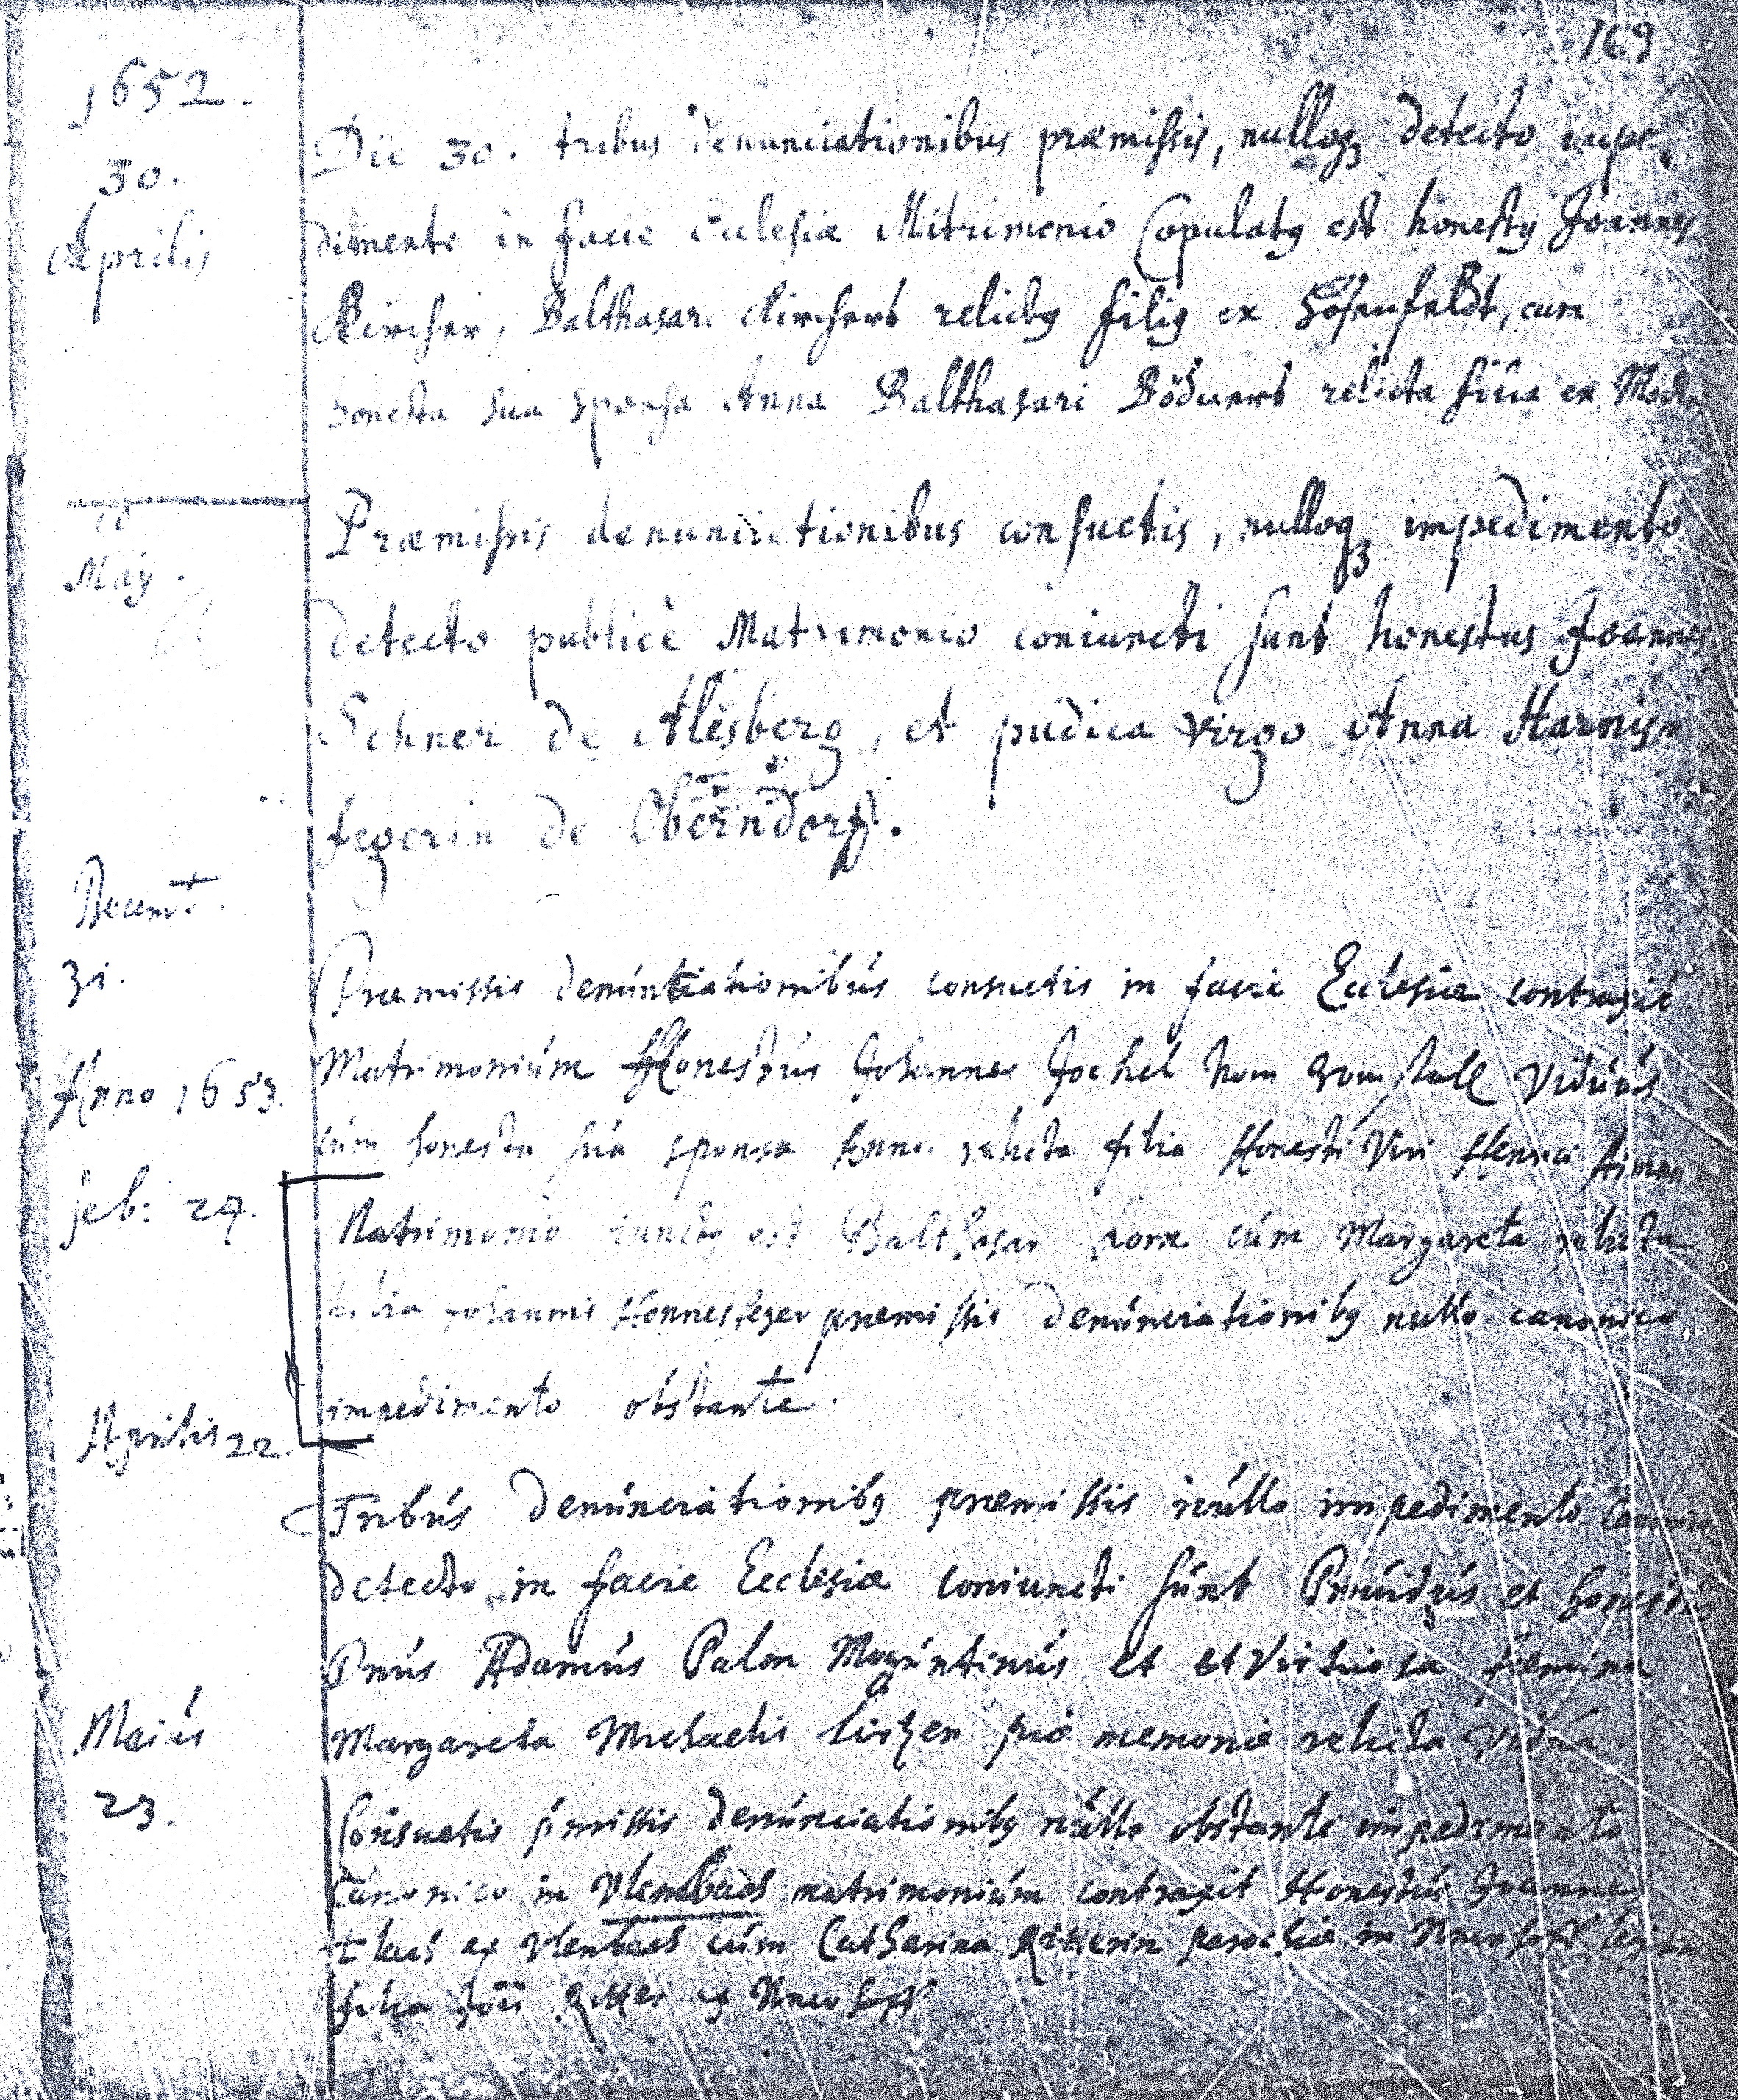 169
1652.
30.
Aprilis
Die 30. tribus denunciationibus præmissis, nulloq3 detecto impe
dimento in facie Ecclesiæ Mitrimonio Copulatg est honestg Joannes
Kircher, Balthasar. Kirchers relictg filig ex Hosenfeldt, cum
honesta sua sponsa Anna Balthasari Böduers relicta filia ex
May.
Præmissis denunciationibus consuetis, nulloq3 impedimento
detecto publicè Matrimonio coniuncti sunt honestus Joannes
Schner de Alesberg, et pudica virgo Anna Harnisch
fegerin de Oberndorff.
Decemb.
31.
Præmissis denúntiationibús consuetis in facie Ecclesiæ contraxit
Matrimoniúm Honestús Johannes Jochel vom Viduús
Anno 1653.
cúm honesta súa sponsa Anna relicta filia Honesti Viri Henrici
Feb: 24.
Matrimonio iunctg est Balthasar cúm Margareta relicta
filia Johannis præmissis denúnciationibg nullo canonico
impedimento obstante.
Aprilis 22.
Tribús denúnciationibg præmissis núllo impedimento
detecto in facie Ecclesiæ coniuncti súnt et
Adamús Palm Mogúntinús et et virtuosa fæmina
Margareta Michaelis piæ memoriæ relicta vidua
Maiús
23.
Consuetis ṕmissis denúnciationibg núllo obstante impedimento
Canonico in Vlenbach matrimoniúm contraxit Honestús Joannes
ex Vlenbach cúm Catharina Ritterin parochiæ in
filia Ritter ex